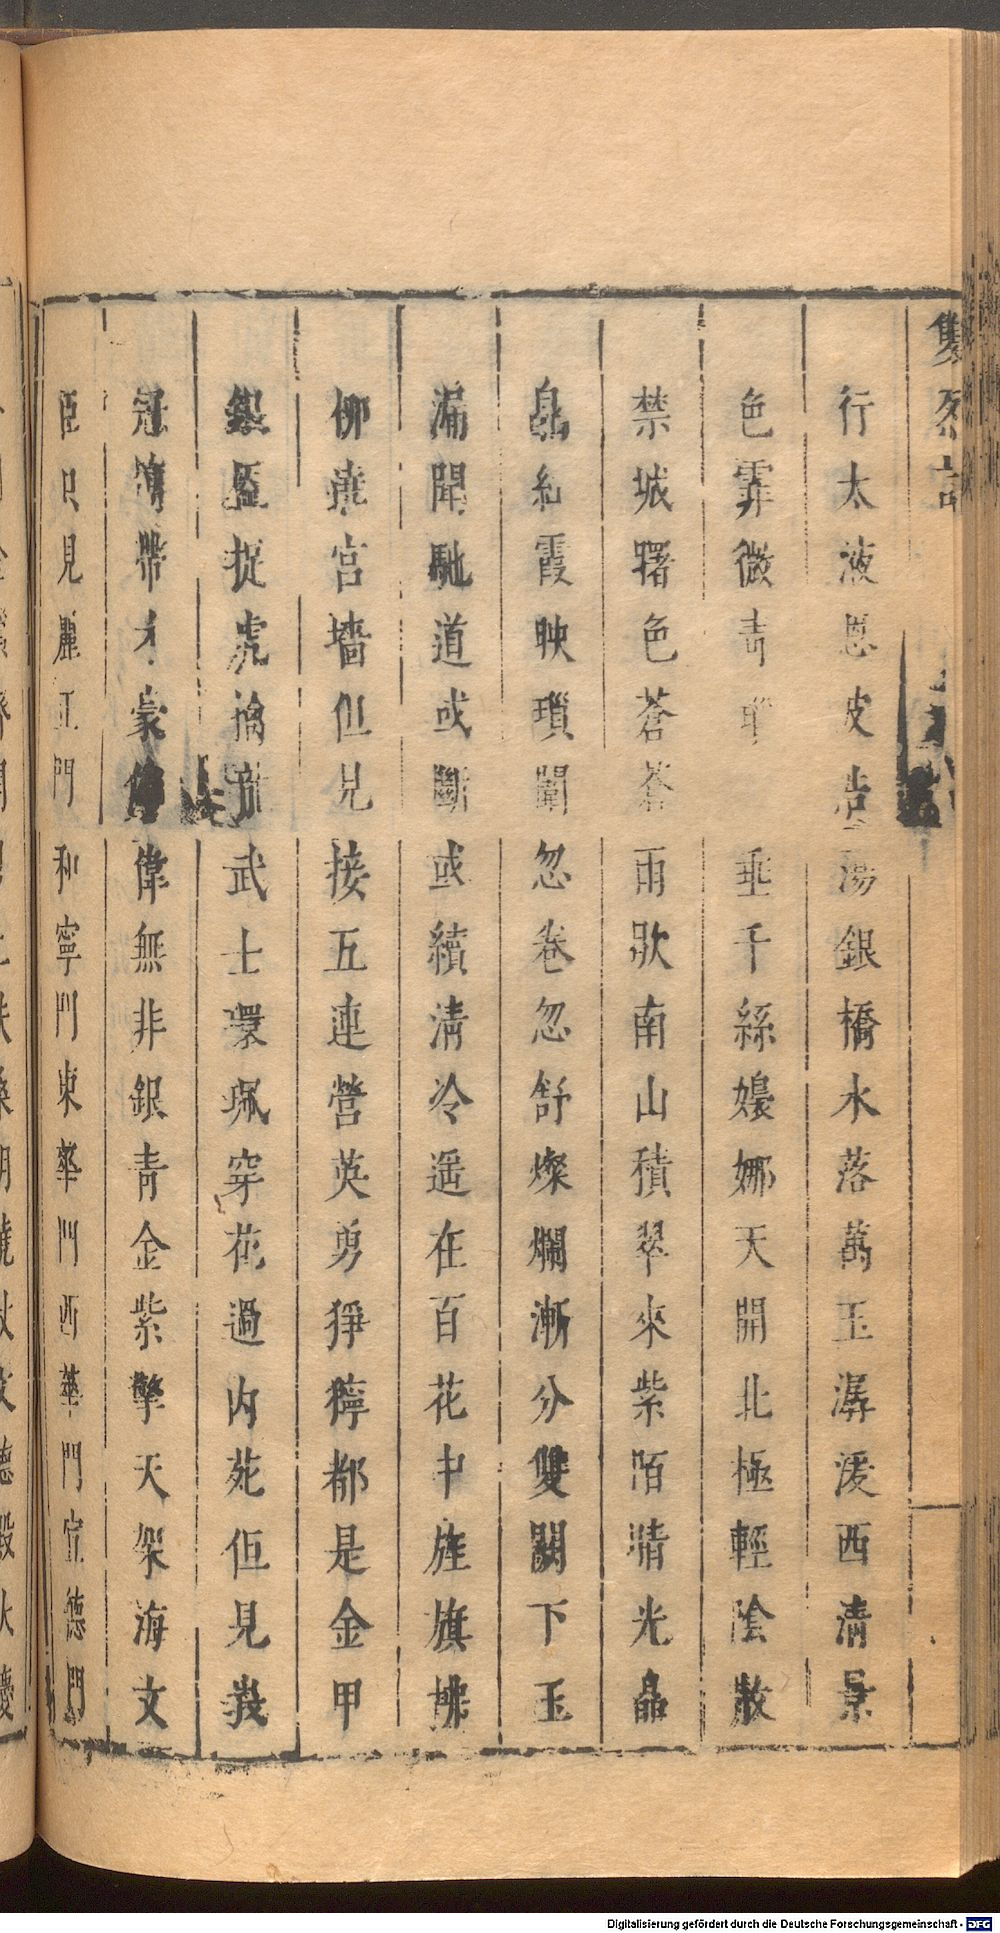 雙烈記
行太液恩波浩蕩銀橋水落萬玉潺湲西清景
色霏微垂千絲嬝娜天開北極輕陰散
禁城曙色蒼蒼雨歇南山積翠來紫陌晴光晶
晶紅霞映瑣闈忽卷忽舒燦爛漸分雙闕下玉
漏聞馳道或斷或續清冷遥在百花中旌旗拂
柳繞宮墻但見接五連營英勇猙獰都是金甲
銀盔捉虎擒龍武士環珮穿花過內苑但見峩
冠博帶才豪偉無非銀青金紫擎天架海文
臣只見麗正門和寧門東華門西華門宣德門
Digitalisierung gefördert durch die Deutsche Forschungsgemeinschaft - DFG